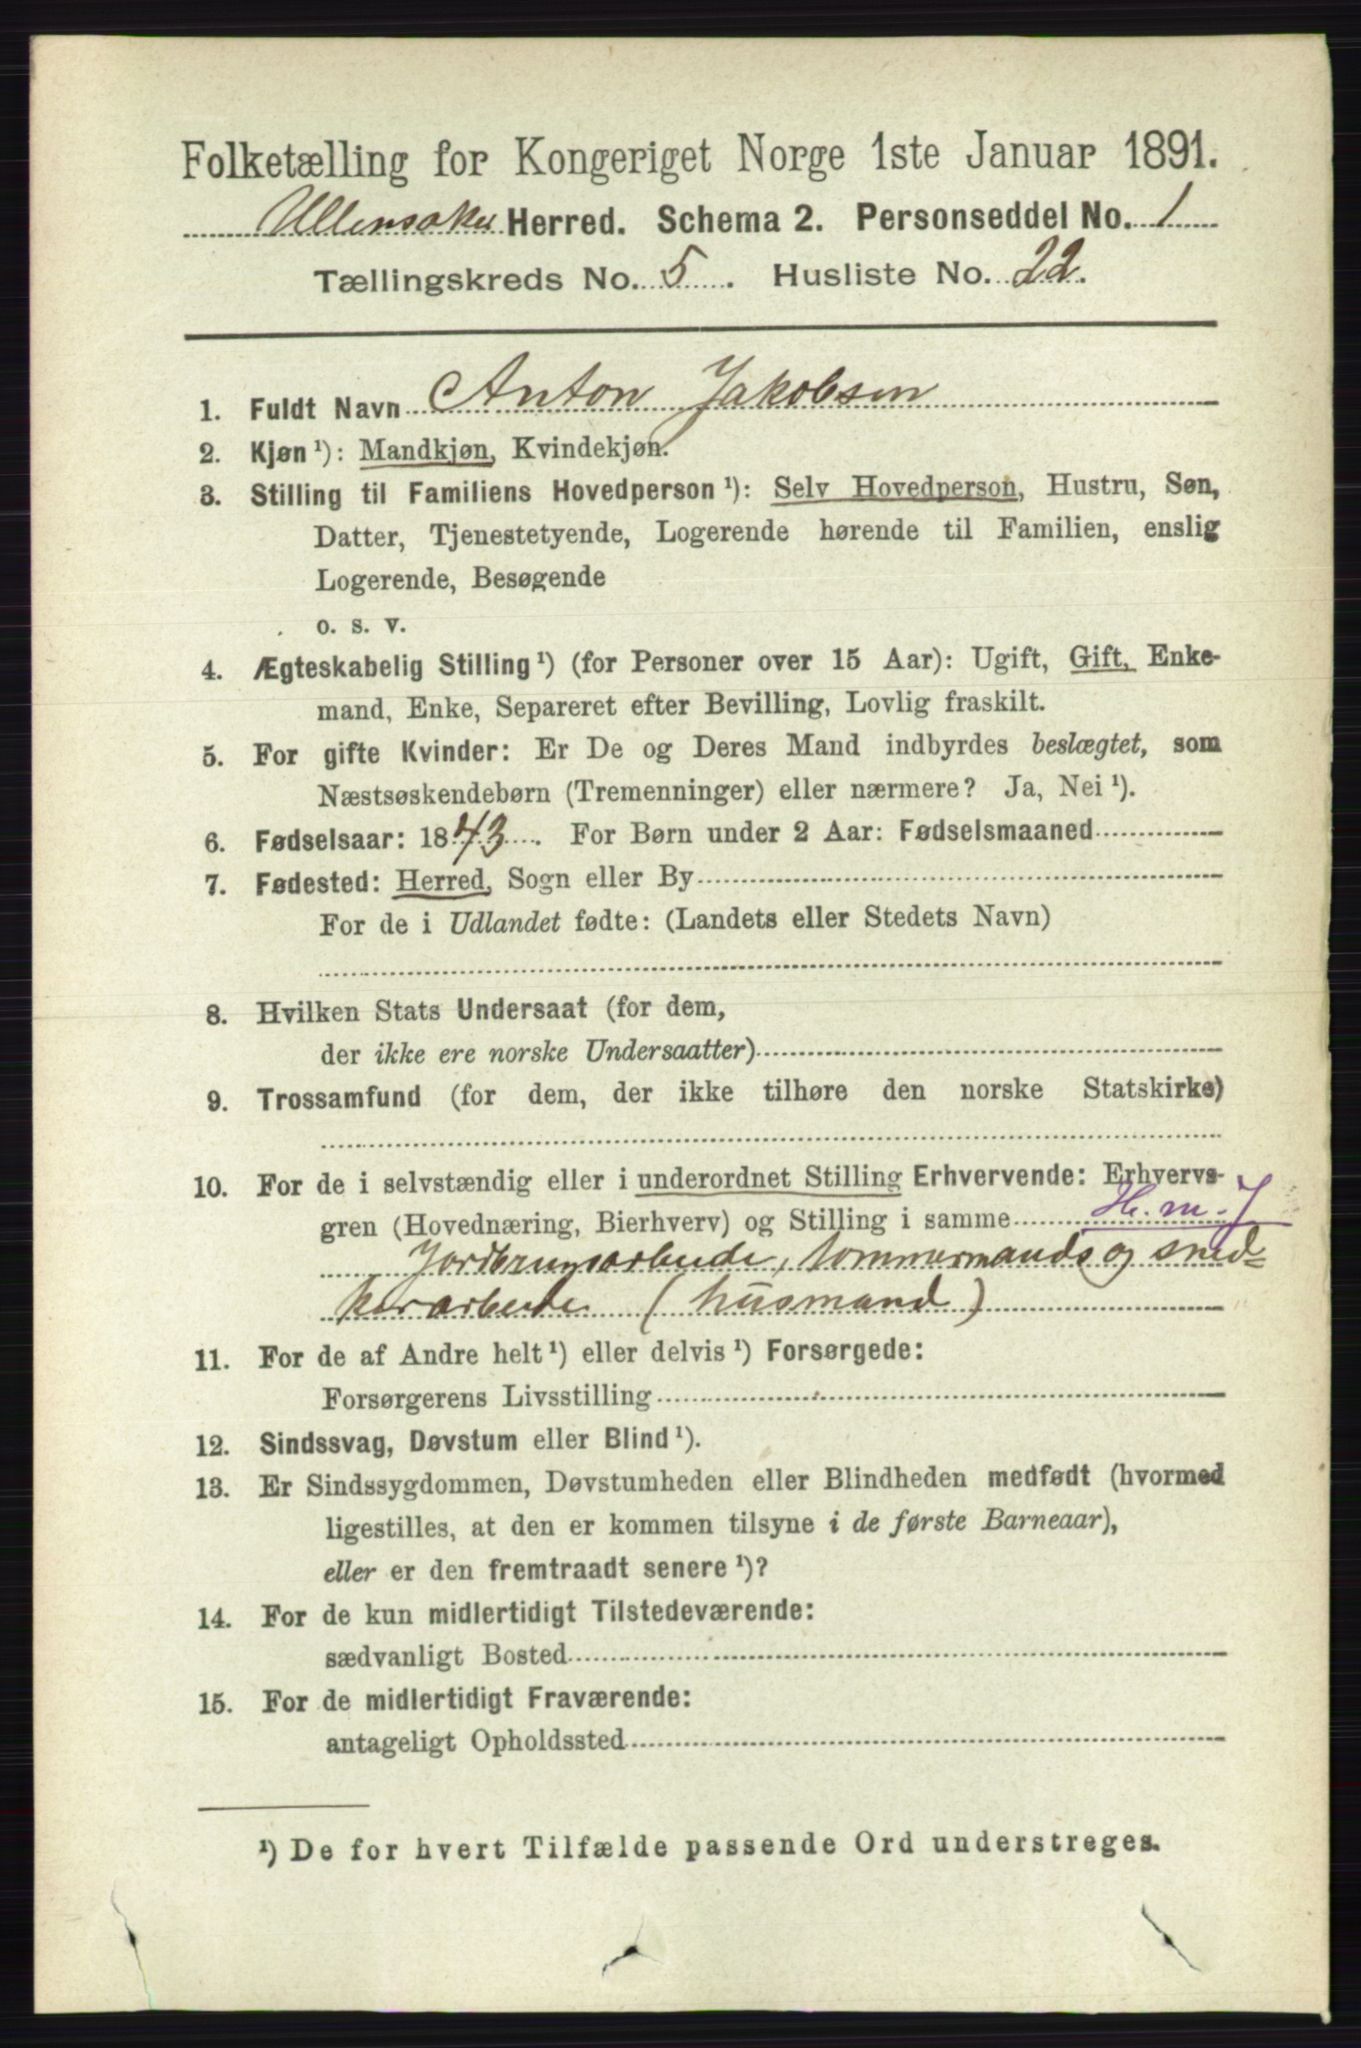 Folketælling for Kongeriget Norge 1ste Januar 1891.
Ullensaker Herred. Schema 2. Personseddel No. 1
Tællingskreds No. 5. Husliste No. 22.
1. Fuldt Navn Anton Jakobsen
2. Kjøn ¹): Mandkjøn, Kvindekjøn.
3. Stilling til Familiens Hovedperson ¹): Selv Hovedperson, Hustru, Søn,
Datter, Tjenestetyende, Logerende hørende til Familien, enslig
Logerende, Besøgende
o. s. v.
4. Ægteskabelig Stilling ¹) (for Personer over 15 Aar): Ugift, Gift, Enke-
mand, Enke, Separeret efter Bevilling, Lovlig fraskilt.
5. For gifte Kvinder: Er De og Deres Mand indbyrdes beslægtet, som
Næstsøskendebørn (Tremenninger) eller nærmere? Ja, Nei ¹).
6. Fødselsaar: 1843. For Børn under 2 Aar: Fødselsmaaned
7. Fødested: Herred, Sogn eller By
For de i Udlandet fødte: (Landets eller Stedets Navn)
8. Hvilken Stats Undersaat (for dem,
der ikke ere norske Undersaatter)
9. Trossamfund (for dem, der ikke tilhøre den norske Statskirke)
10. For de i selvstændig eller i underordnet Stilling Erhvervende: Erhvervs-
gren (Hovednæring, Bierhverv) og Stilling i samme H. m. J
Jordbrugsarbeide, tommermands og sned=
kerarbeide (husmand)
11. For de af Andre helt ¹) eller delvis ¹) Forsørgede:
Forsørgerens Livsstilling
12. Sindssvag, Døvstum eller Blind ¹).
13. Er Sindssygdommen, Døvstumheden eller Blindheden medfødt (hvormed
ligestilles, at den er kommen tilsyne i de første Barneaar),
eller er den fremtraadt senere ¹)?
14. For de kun midlertidigt Tilstedeværende:
sædvanligt Bosted
15. For de midlertidigt Fraværende:
antageligt Opholdssted
¹) De for hvert Tilfælde passende Ord understreges.